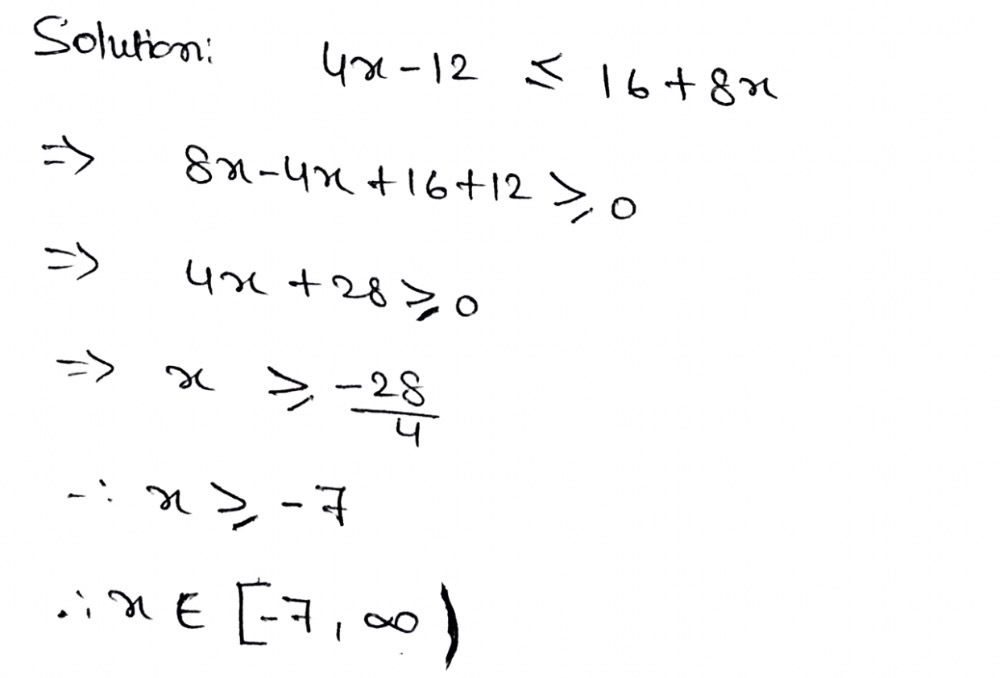 Solution: 4x-12 ≤ 16+8x
=> 8x-4x+16+12 ≥ 0
=> 4x+28 ≥ 0
=> x ≥ -28/4
∴ x ≥ -7
∴ x ∈ [-7, ∞)